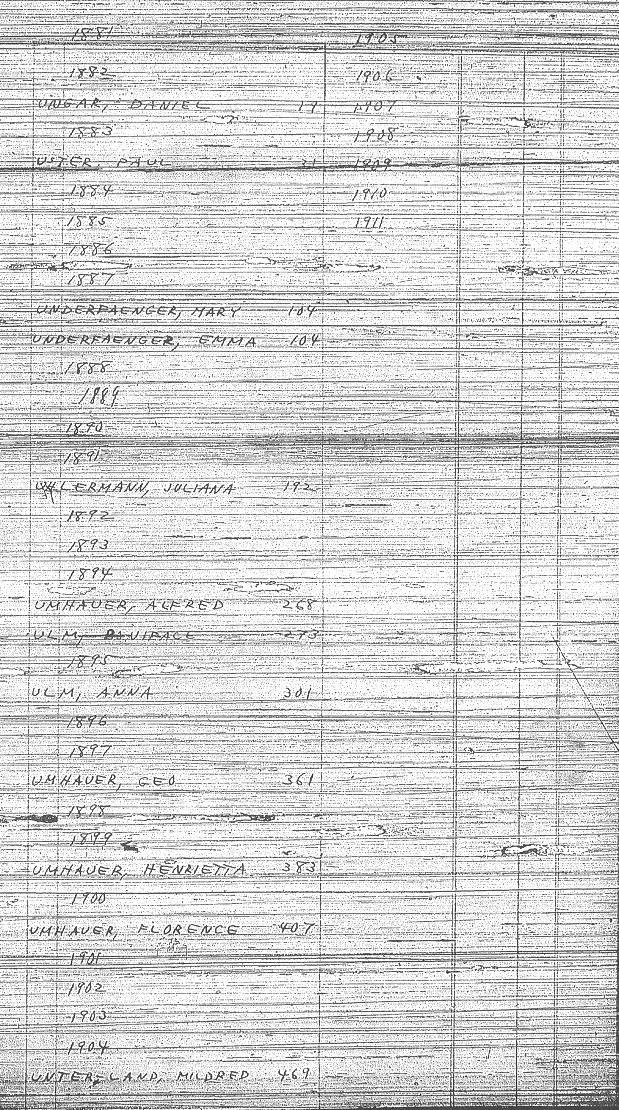 1881
1882
UNGAR, DANIEL 19
1883
USTER, PAUL 31
1884
1885
1886
1887
UNDERPAENGER, MARY 104
UNDERFAENGER, EMMA 104
1888
1889
1890
1891
LERMANN, JULIANA 192
1892
1893
1894
UMHAUER, ALFRED 268
ULM, BANIFACE 273
1895
ULM, ANNA 301
1896
1897
UMHAUER, GEO 361
1898
1899
UMHAUER, HENRIETTA 383
1900
UMHAUER, FLORENCE 407
1901
1902
1903
1904
UNTERLAND, MILDRED 469
1905
1906
1907
1908
1909
1910
1911